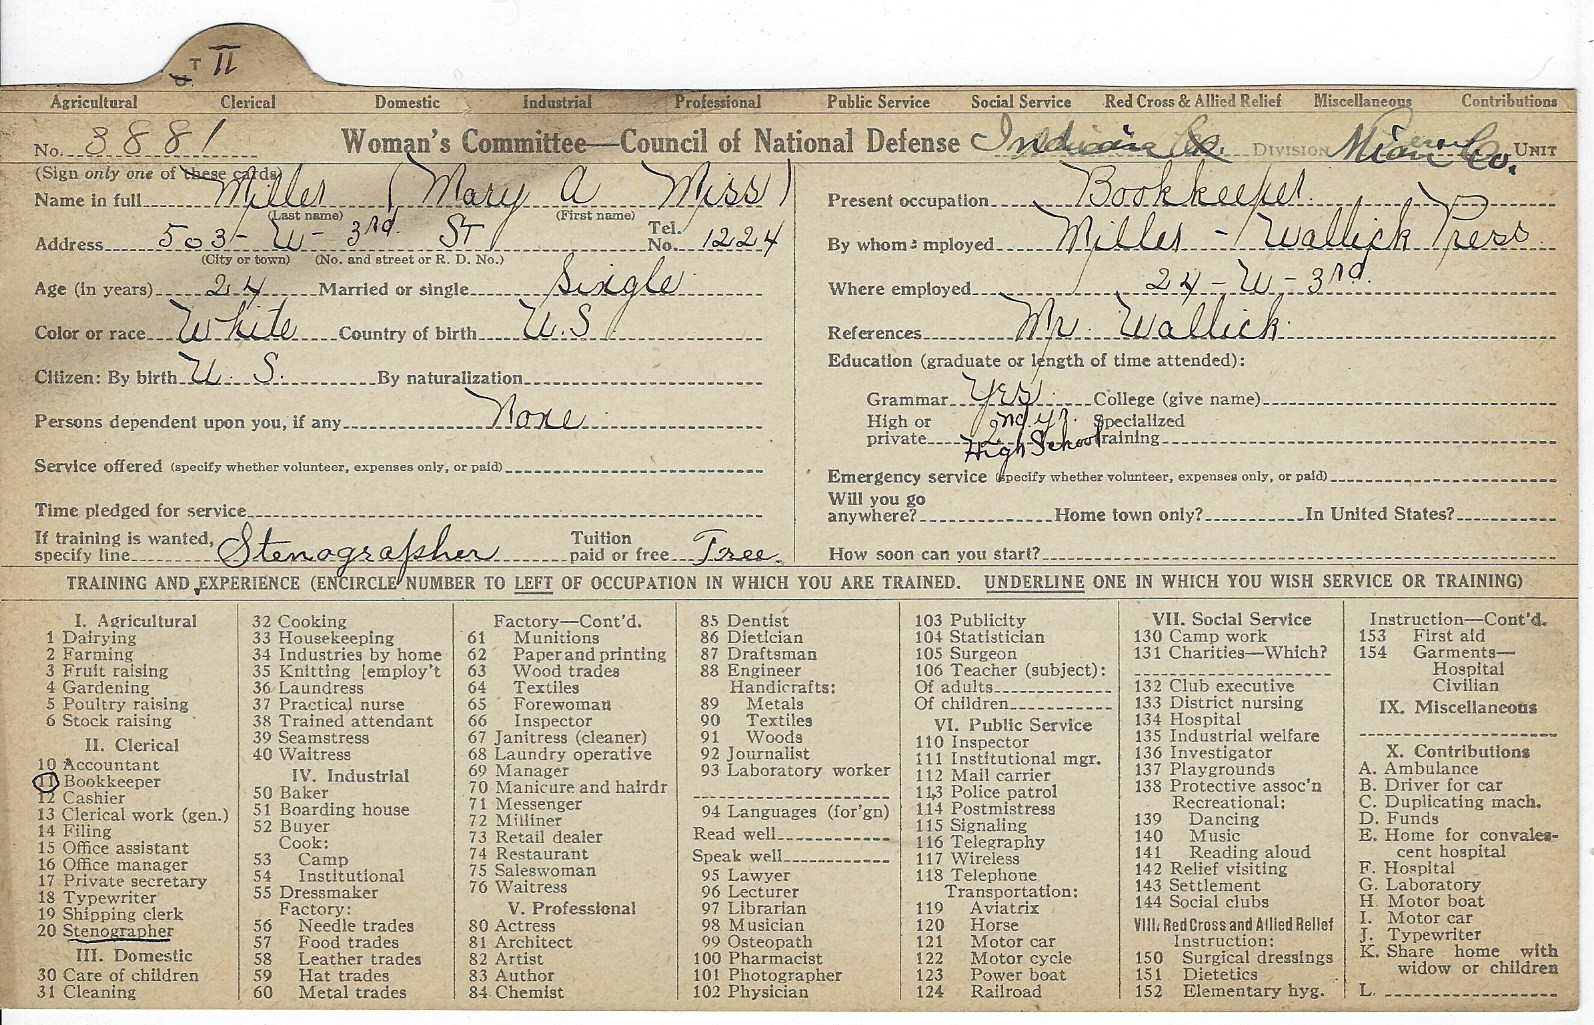 T II
Agricultural Clerical Domestic Industrial Professional Public Service Social Service Red Cross & Allied Relief Miscellaneous Contributions
No. 3881 Woman's Committee—Council of National Defense Indiana DIVISION Miami Co. UNIT
(Sign only one of these cards)
Name in full Miller (Mary A Miss)
(Last name) (First name)
Address 503- W- 3rd St Tel. No. 1224
(City or town) (No. and street or R. D. No.)
Age (in years) 24 Married or single Single
Color or race White Country of birth U.S.
Citizen: By birth U. S. By naturalization
Persons dependent upon you, if any None
Service offered (specify whether volunteer, expenses only, or paid)
Time pledged for service
If training is wanted, specify line Stenographer Tuition paid or free Free
Present occupation Bookkeeper
By whom employed Miller - Wallick Press
Where employed 24 - W - 3rd.
References Mr. Wallick.
Education (graduate or length of time attended):
Grammar Yes College (give name)
High or private 2nd yr. High School Specialized training
Emergency service (specify whether volunteer, expenses only, or paid)
Will you go anywhere? Home town only? In United States?
How soon can you start?
TRAINING AND EXPERIENCE (ENCIRCLE NUMBER TO LEFT OF OCCUPATION IN WHICH YOU ARE TRAINED. UNDERLINE ONE IN WHICH YOU WISH SERVICE OR TRAINING)
I. Agricultural
1 Dairying
2 Farming
3 Fruit raising
4 Gardening
5 Poultry raising
6 Stock raising
II. Clerical
10 Accountant
11 Bookkeeper
12 Cashier
13 Clerical work (gen.)
14 Filing
15 Office assistant
16 Office manager
17 Private secretary
18 Typewriter
19 Shipping clerk
20 Stenographer
III. Domestic
30 Care of children
31 Cleaning
32 Cooking
33 Housekeeping
34 Industries by home
35 Knitting [employ't
36 Laundress
37 Practical nurse
38 Trained attendant
39 Seamstress
40 Waitress
IV. Industrial
50 Baker
51 Boarding house
52 Buyer
Cook:
53 Camp
54 Institutional
55 Dressmaker
Factory:
56 Needle trades
57 Food trades
58 Leather trades
59 Hat trades
60 Metal trades
Factory—Cont'd.
61 Munitions
62 Paper and printing
63 Wood trades
64 Textiles
65 Forewoman
66 Inspector
67 Janitress (cleaner)
68 Laundry operative
69 Manager
70 Manicure and hairdr
71 Messenger
72 Milliner
73 Retail dealer
74 Restaurant
75 Saleswoman
76 Waitress
V. Professional
80 Actress
81 Architect
82 Artist
83 Author
84 Chemist
85 Dentist
86 Dietician
87 Draftsman
88 Engineer
Handicrafts:
89 Metals
90 Textiles
91 Woods
92 Journalist
93 Laboratory worker
94 Languages (for'gn)
Read well
Speak well
95 Lawyer
96 Lecturer
97 Librarian
98 Musician
99 Osteopath
100 Pharmacist
101 Photographer
102 Physician
103 Publicity
104 Statistician
105 Surgeon
106 Teacher (subject):
Of adults
Of children
VI. Public Service
110 Inspector
111 Institutional mgr.
112 Mail carrier
113 Police patrol
114 Postmistress
115 Signaling
116 Telegraphy
117 Wireless
118 Telephone
Transportation:
119 Aviatrix
120 Horse
121 Motor car
122 Motor cycle
123 Power boat
124 Railroad
VII. Social Service
130 Camp work
131 Charities—Which?
132 Club executive
133 District nursing
134 Hospital
135 Industrial welfare
136 Investigator
137 Playgrounds
138 Protective assoc'n
Recreational:
139 Dancing
140 Music
141 Reading aloud
142 Relief visiting
143 Settlement
144 Social clubs
VIII. Red Cross and Allied Relief
Instruction:
150 Surgical dressings
151 Dietetics
152 Elementary hyg.
Instruction—Cont'd.
153 First aid
154 Garments—
Hospital
Civilian
IX. Miscellaneous
X. Contributions
A. Ambulance
B. Driver for car
C. Duplicating mach.
D. Funds
E. Home for convales-
cent hospital
F. Hospital
G. Laboratory
H. Motor boat
I. Motor car
J. Typewriter
K. Share home with
widow or children
L.